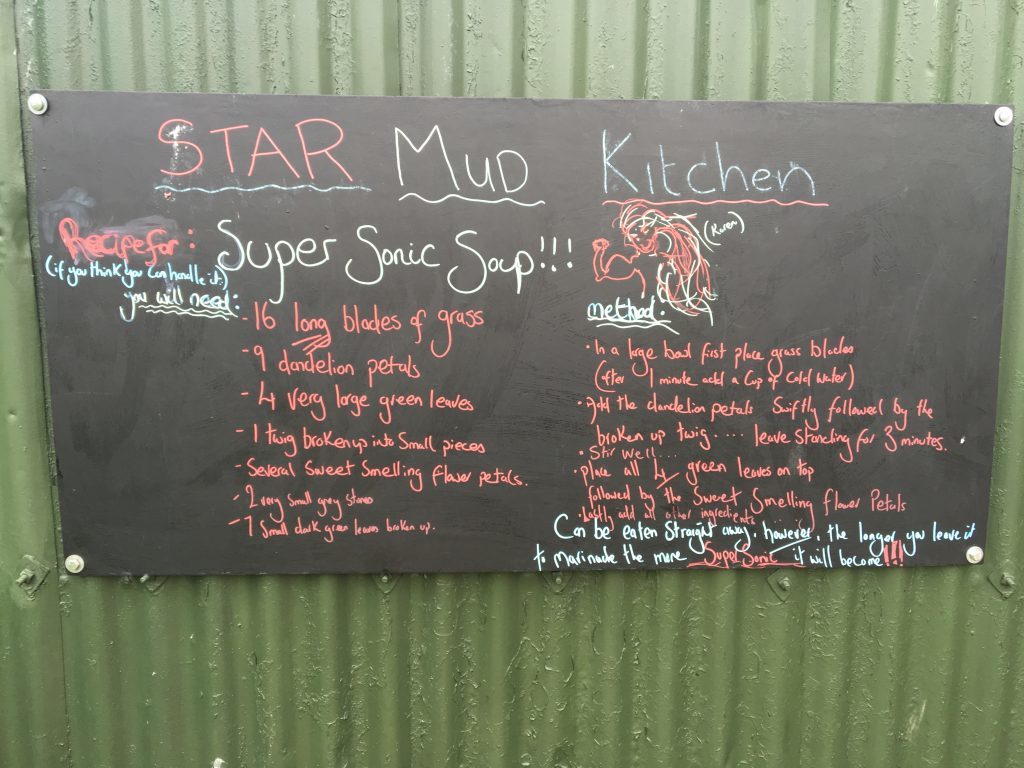 STAR Mud Kitchen
Recipe for: Super Sonic Soup!!!
(if you think you can handle it:)
you will need:
- 16 long blades of grass
- 9 dandelion petals
- 4 very large green leaves
- 1 twig broken up into small pieces
- Several sweet smelling flower petals.
- 2 very small grey stones
- 7 small dark green leaves broken up.
method:
• In a large bowl first place grass blades
(after 1 minute add a cup of cold water)
• Add the dandelion petals swiftly followed by the
broken up twig.... leave standing for 3 minutes.
• Stir well...
• place all 4 green leaves on top
followed by the sweet smelling flower petals
• Lastly add all other ingredients
Can be eaten straight away, however, the longer you leave it
to marinade the more SuperSonic it will become!!!